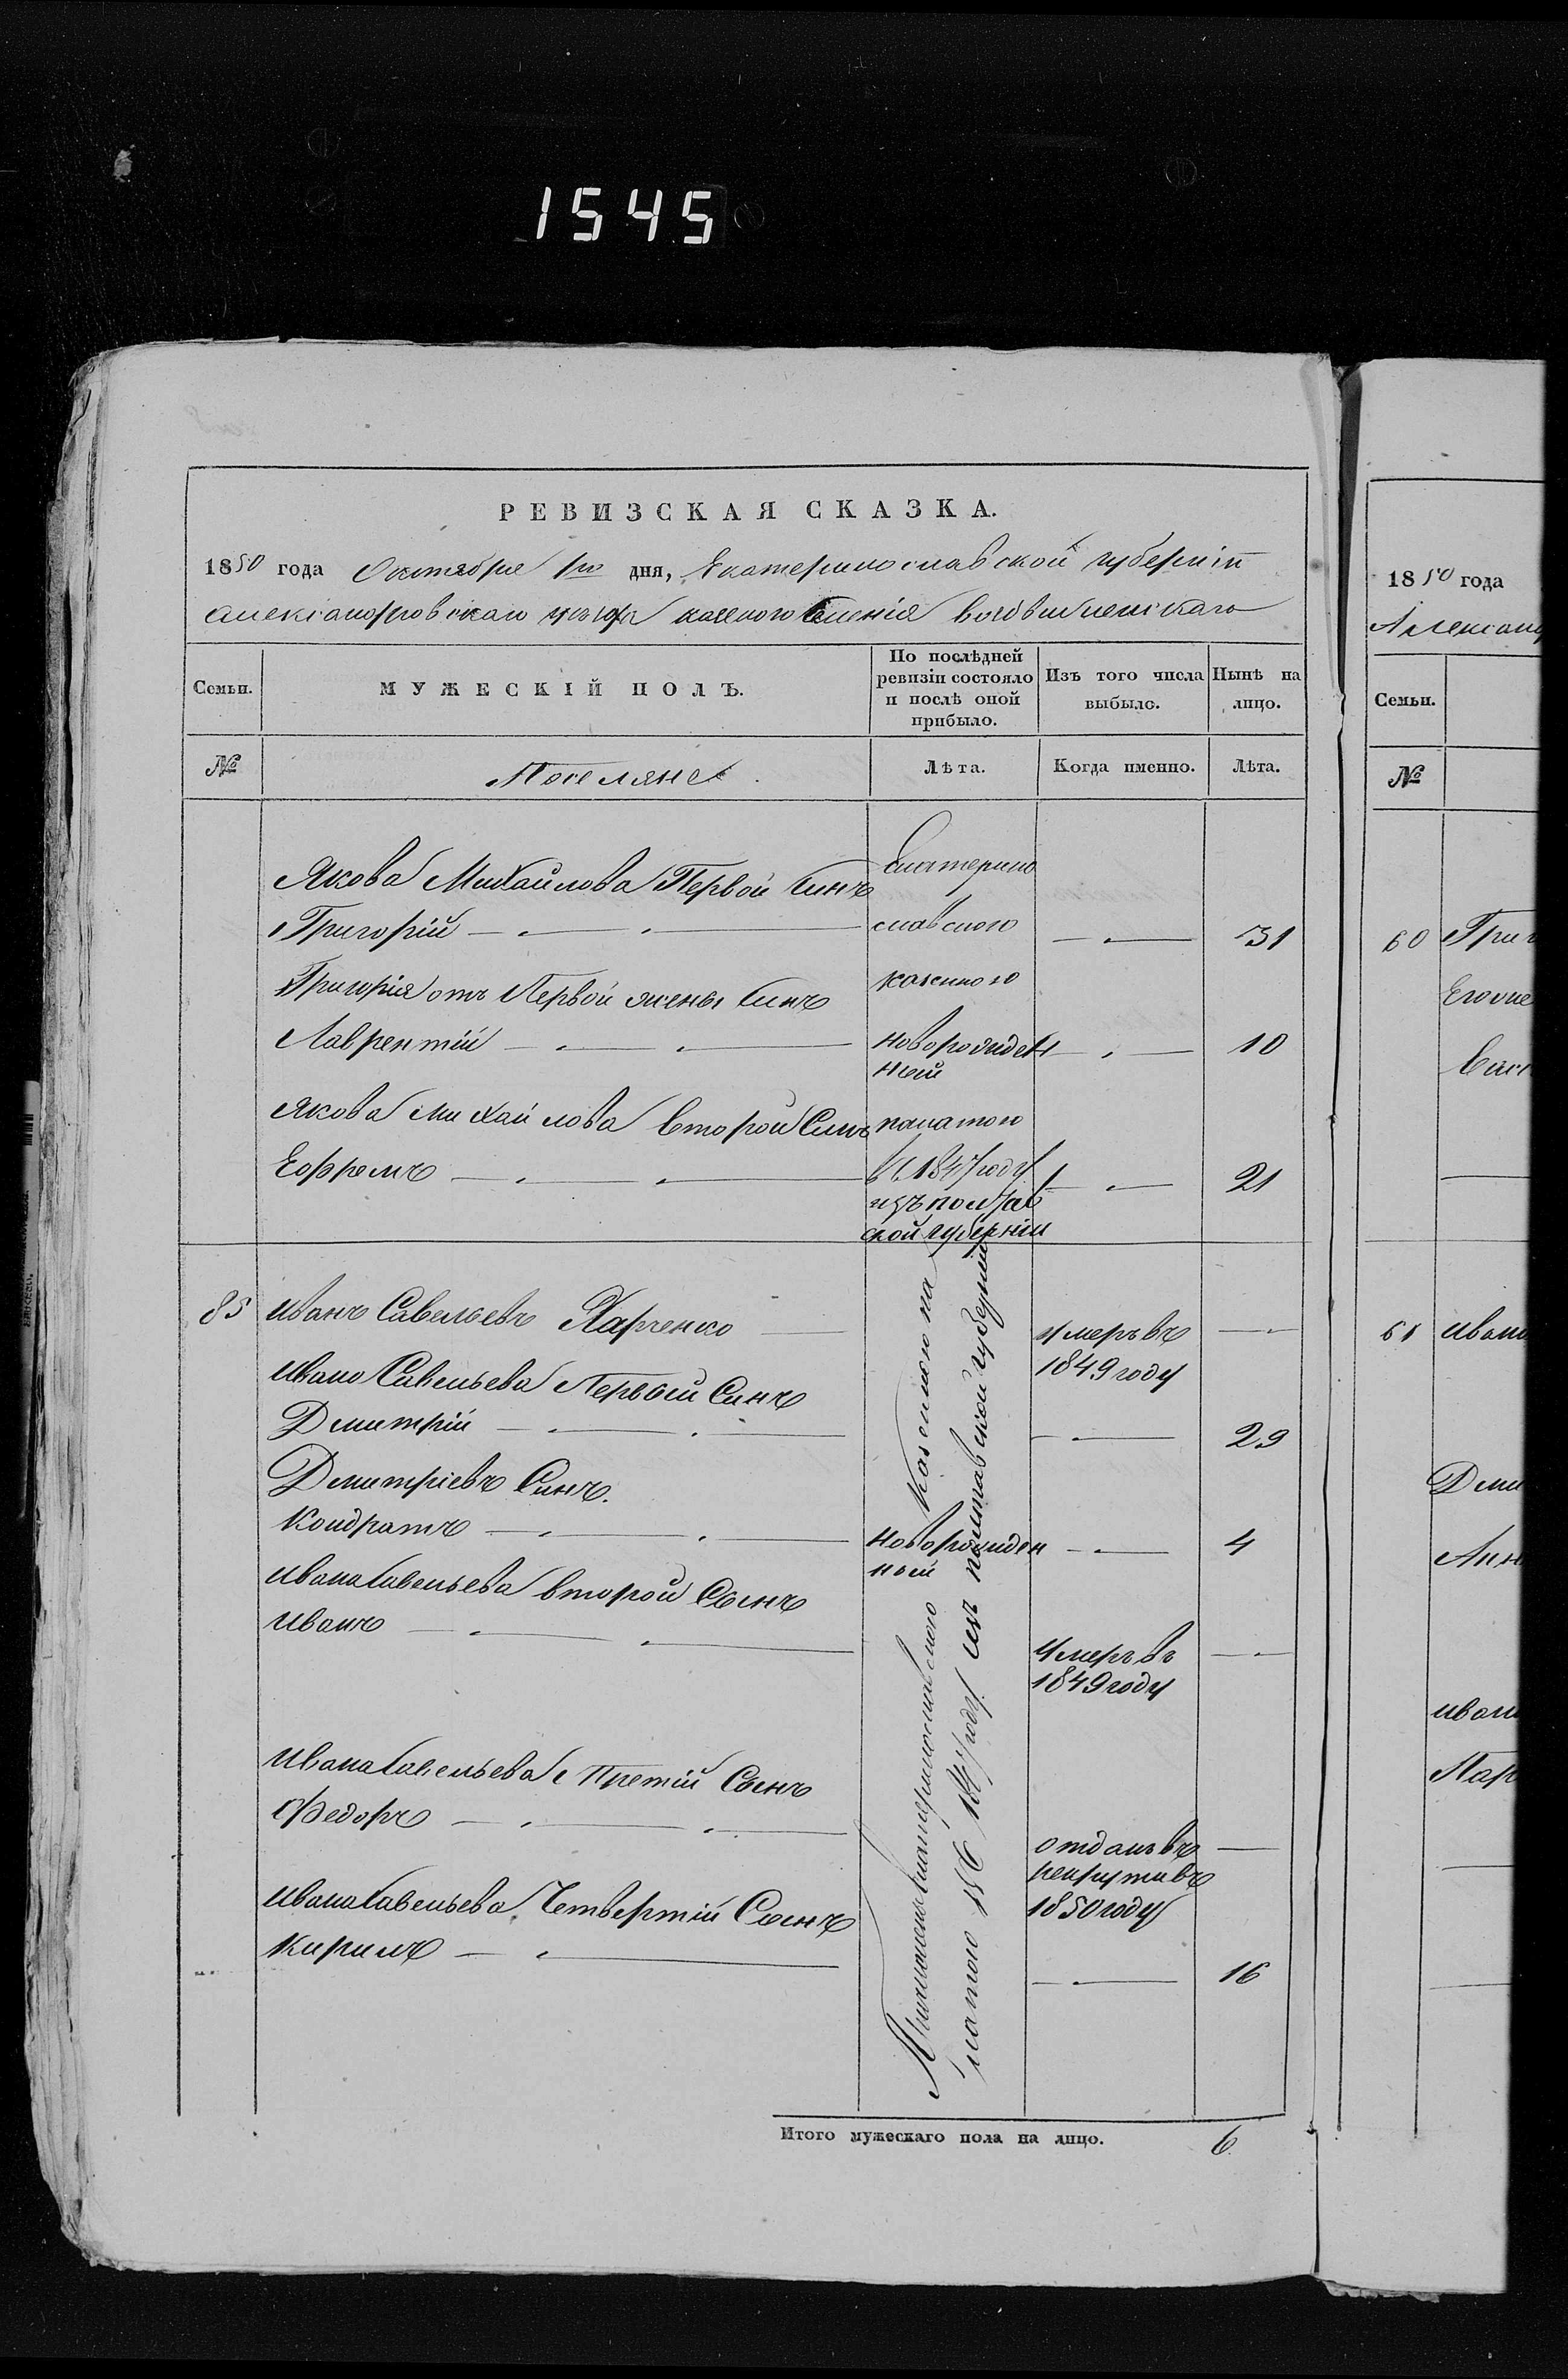 1545
РЕВИЗСКАЯ СКАЗКА.
1850 года Октября 1го дня, Екатеринославской губерніи
Александровскаго уезда казеного Селенія Воздвиженскаго
Семьи. МУЖЕСКІЙ ПОЛЪ. По послѣдней ревизіи состояло и послѣ оной прибыло. Изъ того числа выбыло. Нынѣ на лицо.
№ Поселяне. Лѣта. Когда именно. Лѣта.
Якова Михайлова Первой Синъ Екатерино
Григорій славскою 31
Григорія отъ Первой жены Синъ казенною
Лаврентій новорожден 10
ный
Якова Михайлова второй Синъ палатою
Ефремъ в 1847 году 21
изъ полтав
ской губерніи
85 Иванъ Савельевъ Харченко умеръ въ
1849 году
Ивана Савельева Первой Синъ
Дмитрій 29
Дмитріевъ Синъ.
Кондратъ новорожден 4
ный
Ивана Савельева второй Сынъ
Иванъ умеръ въ
1849 году
Ивана Савельева Третій Сынъ
Федоръ отданъ въ
рекруты въ
Ивана Савельева Четвертій Сынъ 1850 году
Кирилъ 16
Причисленъ Екатеринославскою Казенною па
латою въ 1847 году изъ полтавской губерніи
Итого мужескаго пола на лицо. 6
1850 года
Александ
Семьи.
№
60 Григ
Его
Вас
61 Ивана
Дми
Анн
Иван
Пар